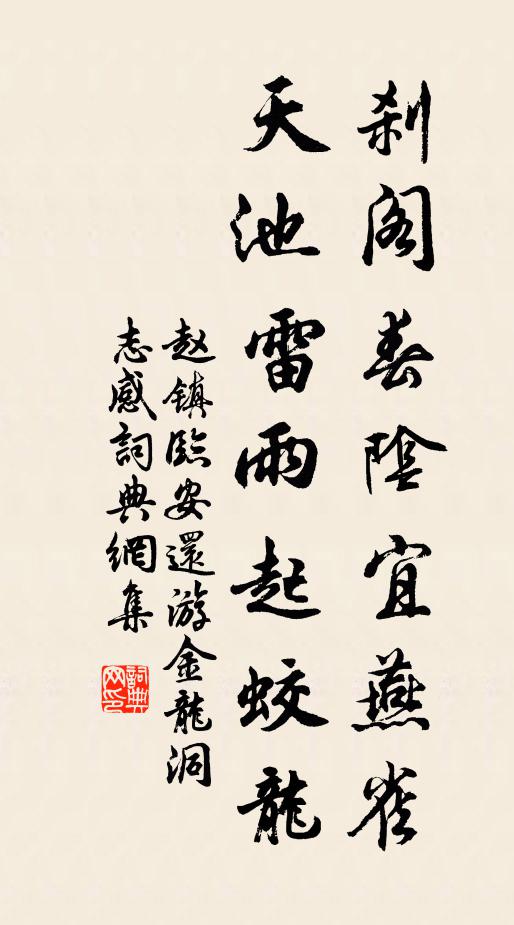 剎閣春陰宜燕雀
天池雷雨起蛟龍
赵鎮臨安還游金龍洞
志感詞典網集
詞典
网印